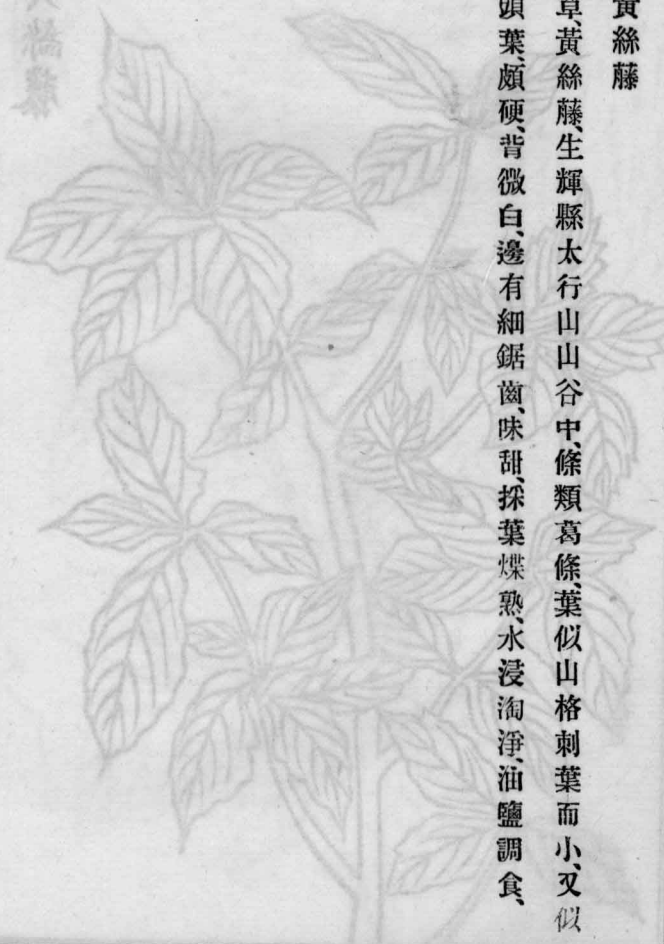 黃絲藤
草、黃絲藤、生輝縣太行山山谷中、條類葛條、葉似山格刺葉而小、又似
頭葉、頗硬、背微白、邊有細鋸齒、味甜、採葉煠熟、水浸淘淨、油鹽調食、